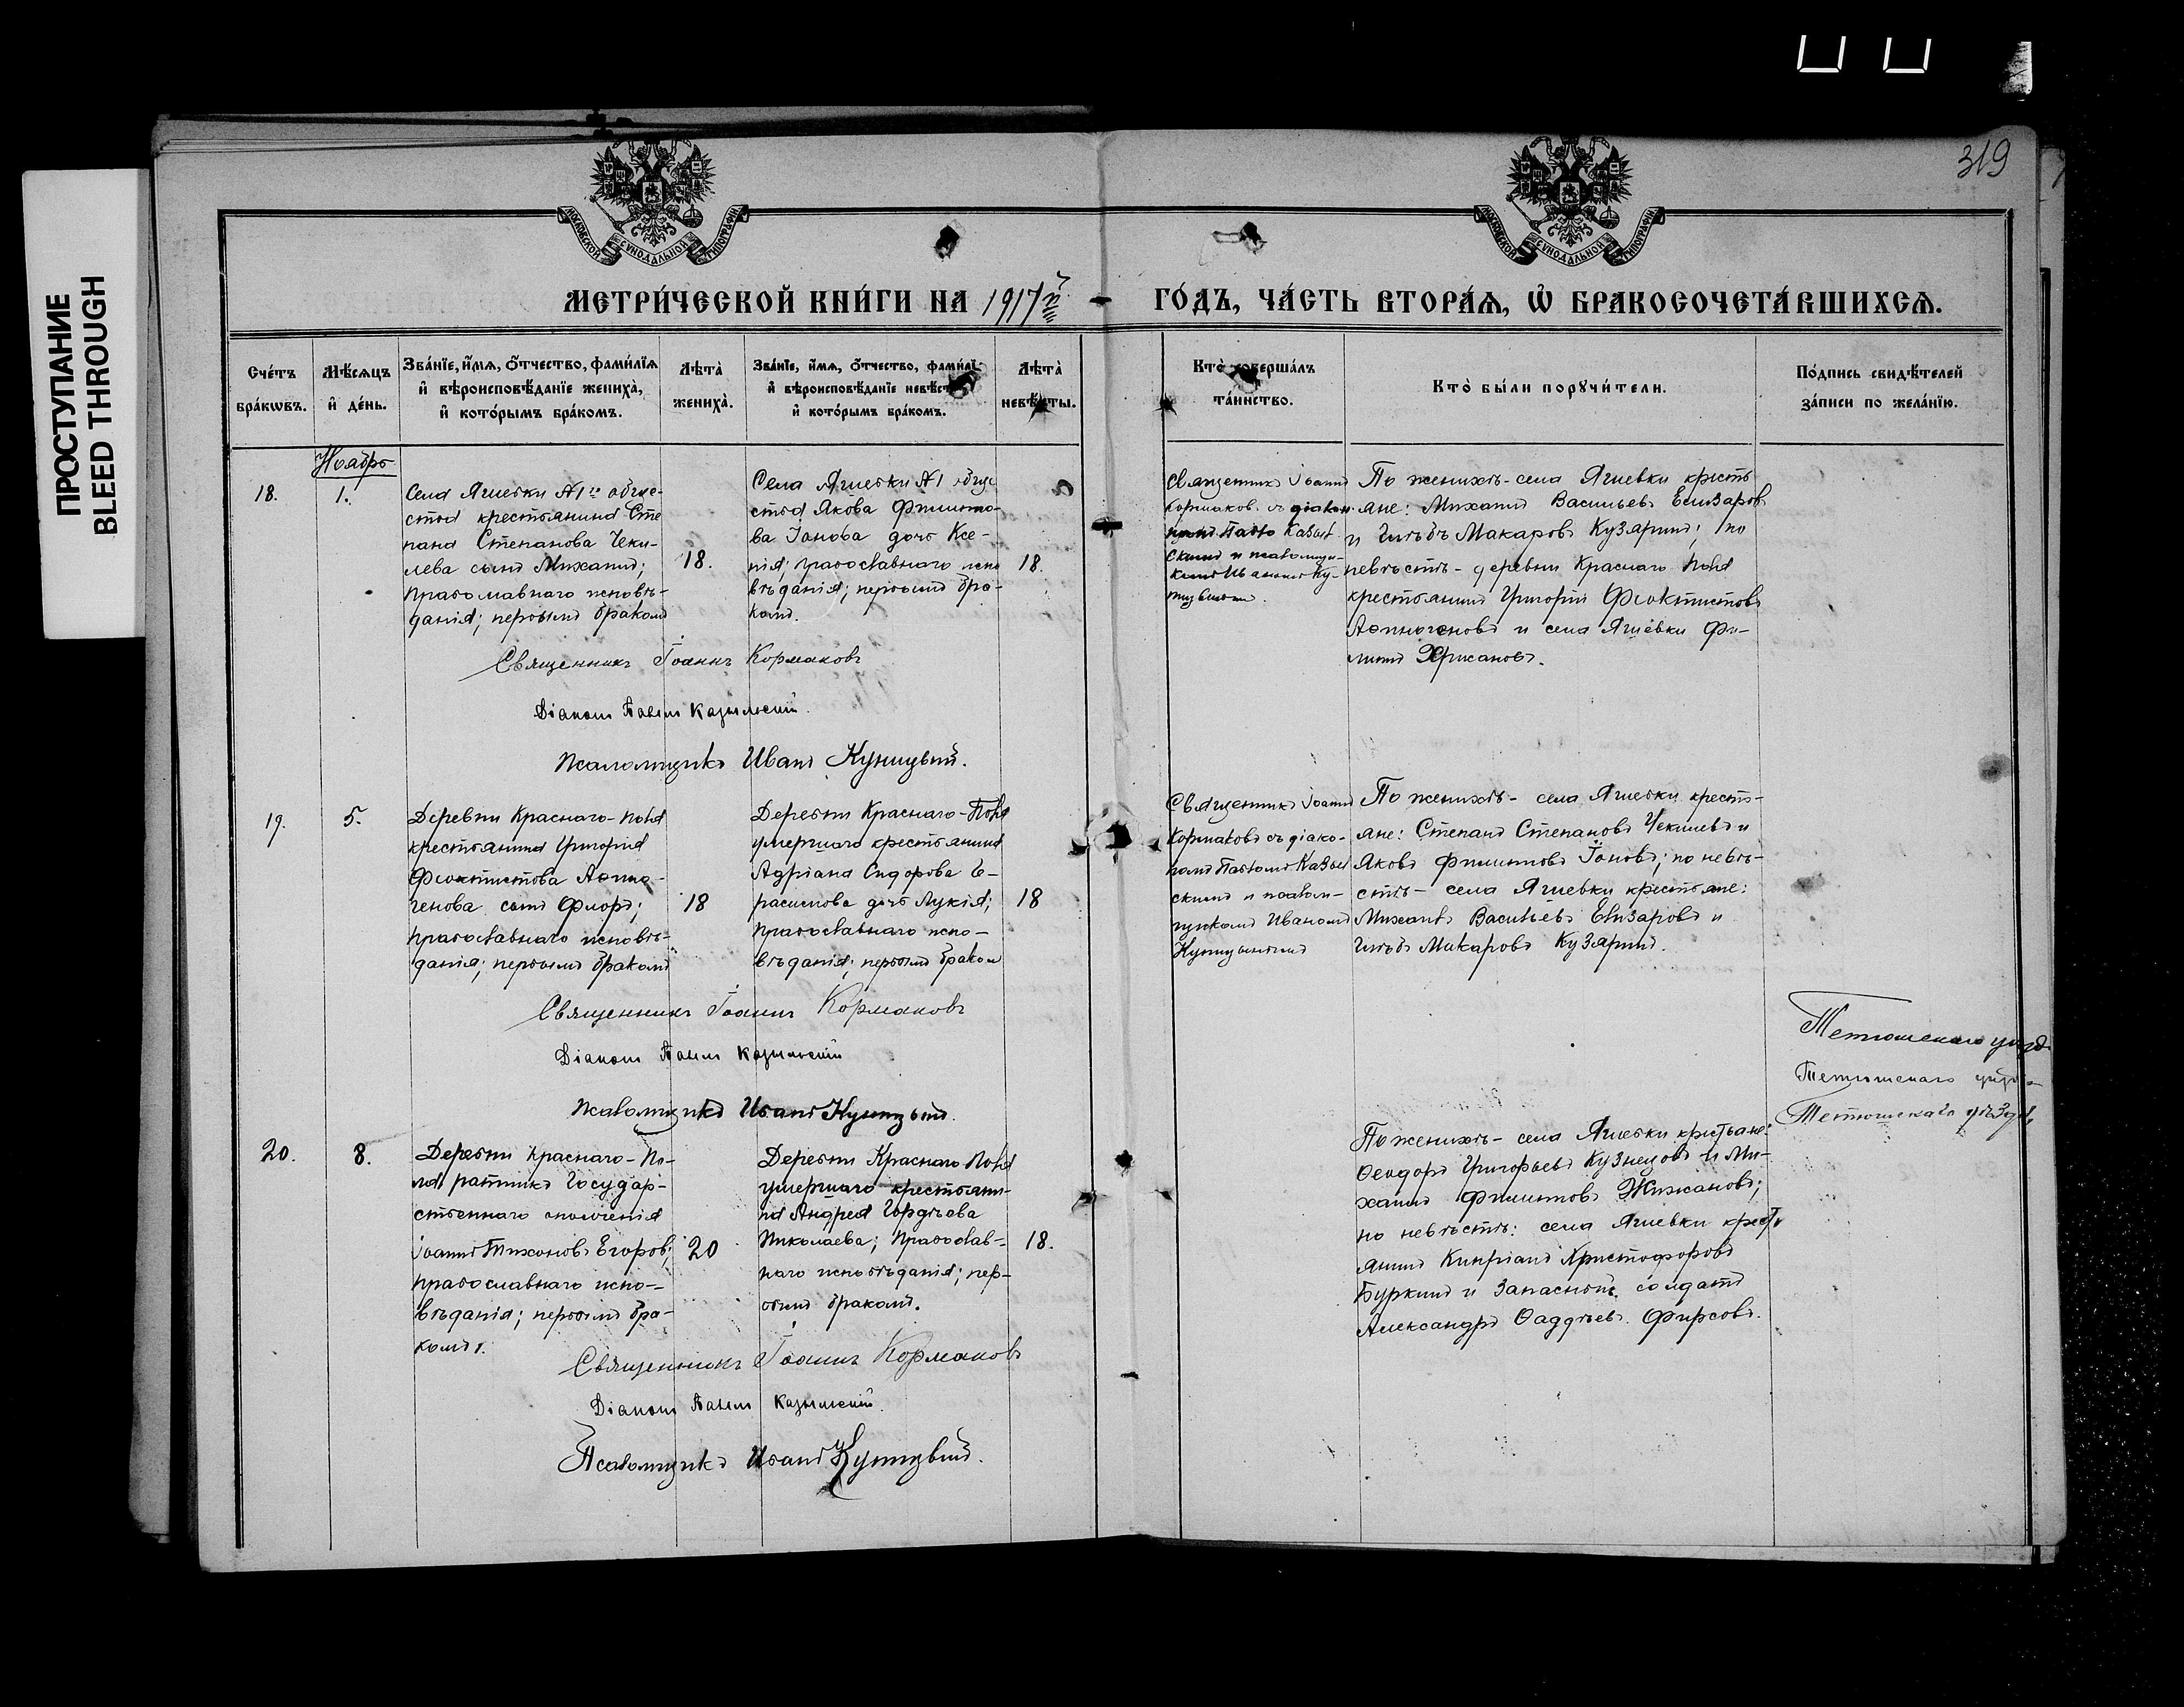 ПРОСТУПАНИЕ
BLEED THROUGH
319
МОСКОВСКОЙ СѴНОДАЛЬНОЙ ТИПОГРАФІИ
МОСКОВСКОЙ СѴНОДАЛЬНОЙ ТИПОГРАФІИ
МЕТРИ́ЧЕСКОЙ КНИ́ГИ НА 1917й ГО́ДЪ, ЧА́СТЬ ВТОРА́Ѧ, Ѡ҆ БРАКОСОЧЕТА́ВШИХСѦ.
Сче́тъ
бра́кѡвъ.
Мѣ́сѧцъ
и҆ де́нь.
Зва́нїе, и҆́мѧ, ѻ҆́тчество, фами́лїѧ
и҆ вѣроисповѣ́данїе жениха̀,
и҆ кото́рымъ бра́комъ.
Лѣ́та̀
жениха̀.
Зва́нїе, и҆́мѧ, ѻ҆́тчество, фами́лї
и҆ вѣроисповѣ́данїе невѣ́ст
и҆ кото́рымъ бра́комъ.
Лѣ́та̀
невѣ́сты.
Кто̀ соверша́лъ
та́инство.
Кто̀ бы́ли порꙋчи́тели.
По́дпись свидѣ́телей
за́писи по жела́нїю.
Ноябрь
18.
1.
Села Ягшевки №1го обще-
ства крестьянина Сте
пана Степанова Чеки-
лева сынъ Михаилъ;
православнаго исповѣ-
данія; первымъ бракомъ
18.
Села Ягшевки №1 обще
ства Якова Филиппо-
ва Іонова дочь Ксе-
нія; православнаго испо
вѣданія; первымъ бра-
комъ.
18.
Священникъ Іоаннъ
Кормаковъ съ діакон
Казыл
скимъ и псаломщи-
комъ Иваномъ Ку-
По женихѣ - села Ягшевки кресть
яне: Михаилъ Васильевъ Елизаровъ
и Глѣбъ Макаровъ Кузяринъ; по
невѣстѣ - деревни Краснаго поля
крестьянинъ Григорій Феоктистовъ
Афиногеновъ и села Ягшевки Фи-
липпъ
Священникъ Іоаннъ Кормаковъ
Діаконъ Павелъ Казыльскій
Псаломщикъ Иванъ
19.
5.
Деревни Краснаго-поля
крестьянина Григорія
Феоктистова Афино-
генова сынъ Флоръ;
православнаго исповѣ-
данія; первымъ бракомъ
18
Деревни Краснаго-Поля
умершаго крестьянина
Адріана Сидорова Ге-
расимова дочь Лукія;
православнаго испо-
вѣданія; первымъ браком
18
Священникъ Іоаннъ
Кормаковъ съ діако-
номъ Павломъ Казыл
скимъ и псалом-
щикомъ Иваномъ
По женихѣ - села Ягшевки кресть-
яне: Степанъ Степановъ Чекилевъ и
Яковъ Филипповъ Іоновъ; по невѣ-
стѣ - села Ягшевки крестьяне:
Михаилъ Васильевъ Елизаровъ и
Глѣбъ Макаровъ Кузяринъ.
Священникъ Іоаннъ Кормаковъ
Діаконъ Павелъ Казыльскій
Псаломщикъ Иванъ
Тетюшскаго уѣзд
Тетюшскаго уѣзда
Тетюшскаго уѣзда
20.
8.
Деревни Краснаго-По-
ля ратникъ Государ-
ственнаго ополченія
Іоаннъ Тихоновъ Егоровъ;
православнаго испо-
вѣданія; первымъ бра-
комъ.
20
Деревни Краснаго Поля
умершаго крестьяни-
на Андрея Гордѣева
Николаева; православ-
наго исповѣданія; пер-
вымъ бракомъ.
18.
По женихѣ - села Ягшевки крестьяне:
Ѳеодоръ Григорьевъ Кузнецовъ и Ми-
хаилъ Филипповъ
по невѣстѣ: села Ягшевки кресть
янинъ Кипріанъ Христофоровъ
Буркинъ и запасный солдатъ
Александръ Ѳаддѣевъ Фирсовъ.
Священникъ Іоаннъ Кормаковъ
Діаконъ Павелъ Казыльскій
Псаломщикъ Иванъ